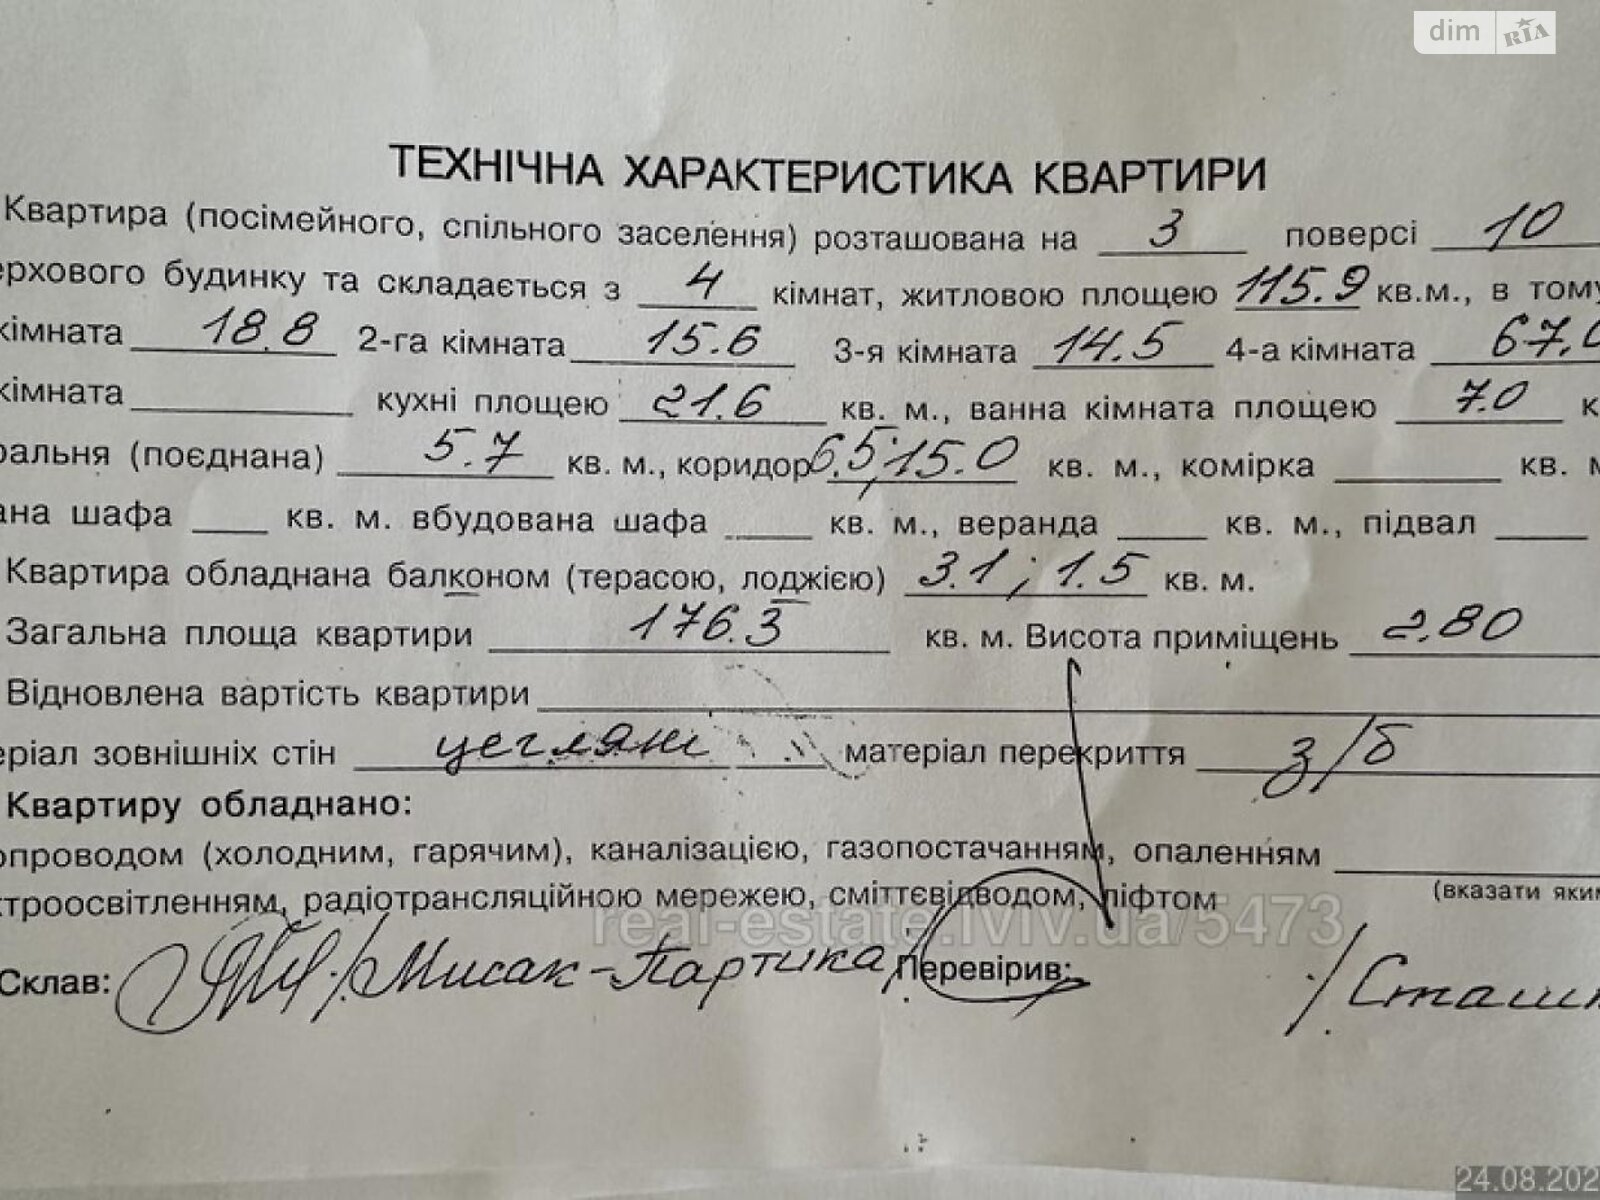 dim RIA
ТЕХНІЧНА ХАРАКТЕРИСТИКА КВАРТИРИ
Квартира (посімейного, спільного заселення) розташована на 3 поверсі 10
ерхового будинку та складається з 4 кімнат, житловою площею 115.9 кв.м., в тому
кімната 18.8 2-га кімната 15.6 3-я кімната 14.5 4-а кімната 67.0
кімната кухні площею 21.6 кв. м., ванна кімната площею 7.0 к
ральня (поєднана) 5.7 кв. м., коридор 6.5; 15.0 кв. м., комірка кв. м
ана шафа кв. м. вбудована шафа кв. м., веранда кв. м., підвал
Квартира обладнана балконом (терасою, лоджією) 3.1 ; 1.5 кв. м.
Загальна площа квартири 176.3 кв. м. Висота приміщень 2.80
Відновлена вартість квартири
еріал зовнішніх стін цегляні матеріал перекриття з/б
Квартиру обладнано:
опроводом (холодним, гарячим), каналізацією, газопостачанням, опаленням
(вказати яким
ктроосвітленням, радіотрансляційною мережею, сміттєвідводом, ліфтом
real-estate.lviv.ua/5473
Склав: /Мисак-Партика/ Перевірив: /Сташ
24.08.202